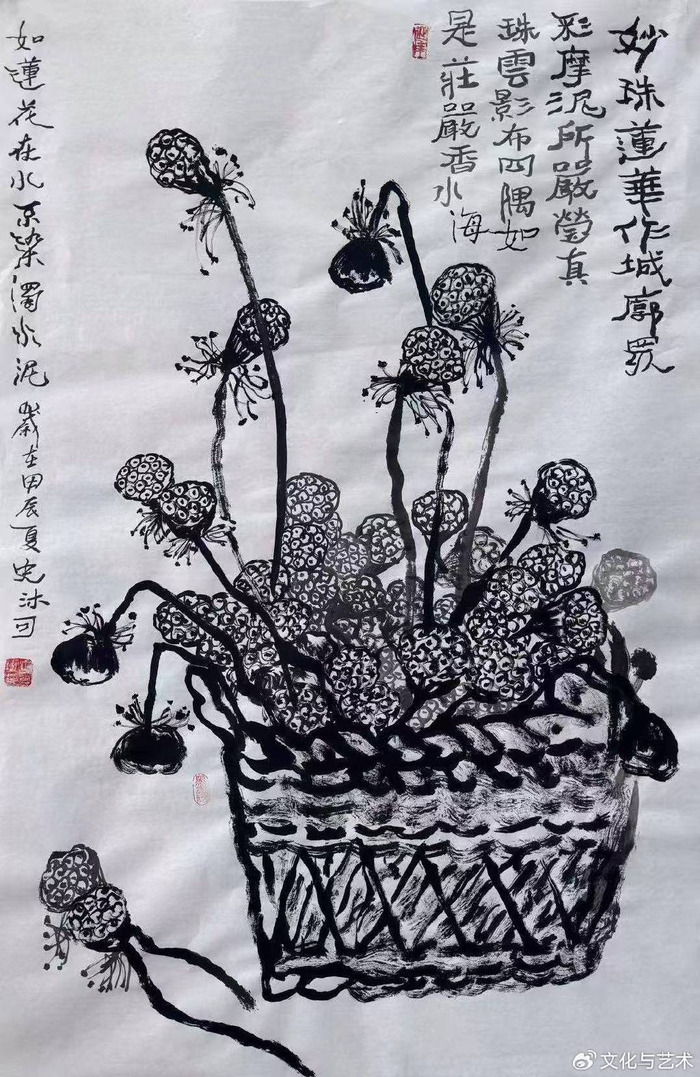 妙珠蓮華作城廓眾
彩摩泥所嚴瑩真
珠雲影布四隅如
是莊嚴香水海
如蓮花在水不染濁水泥 歲在甲辰夏 沐可
文化与艺术